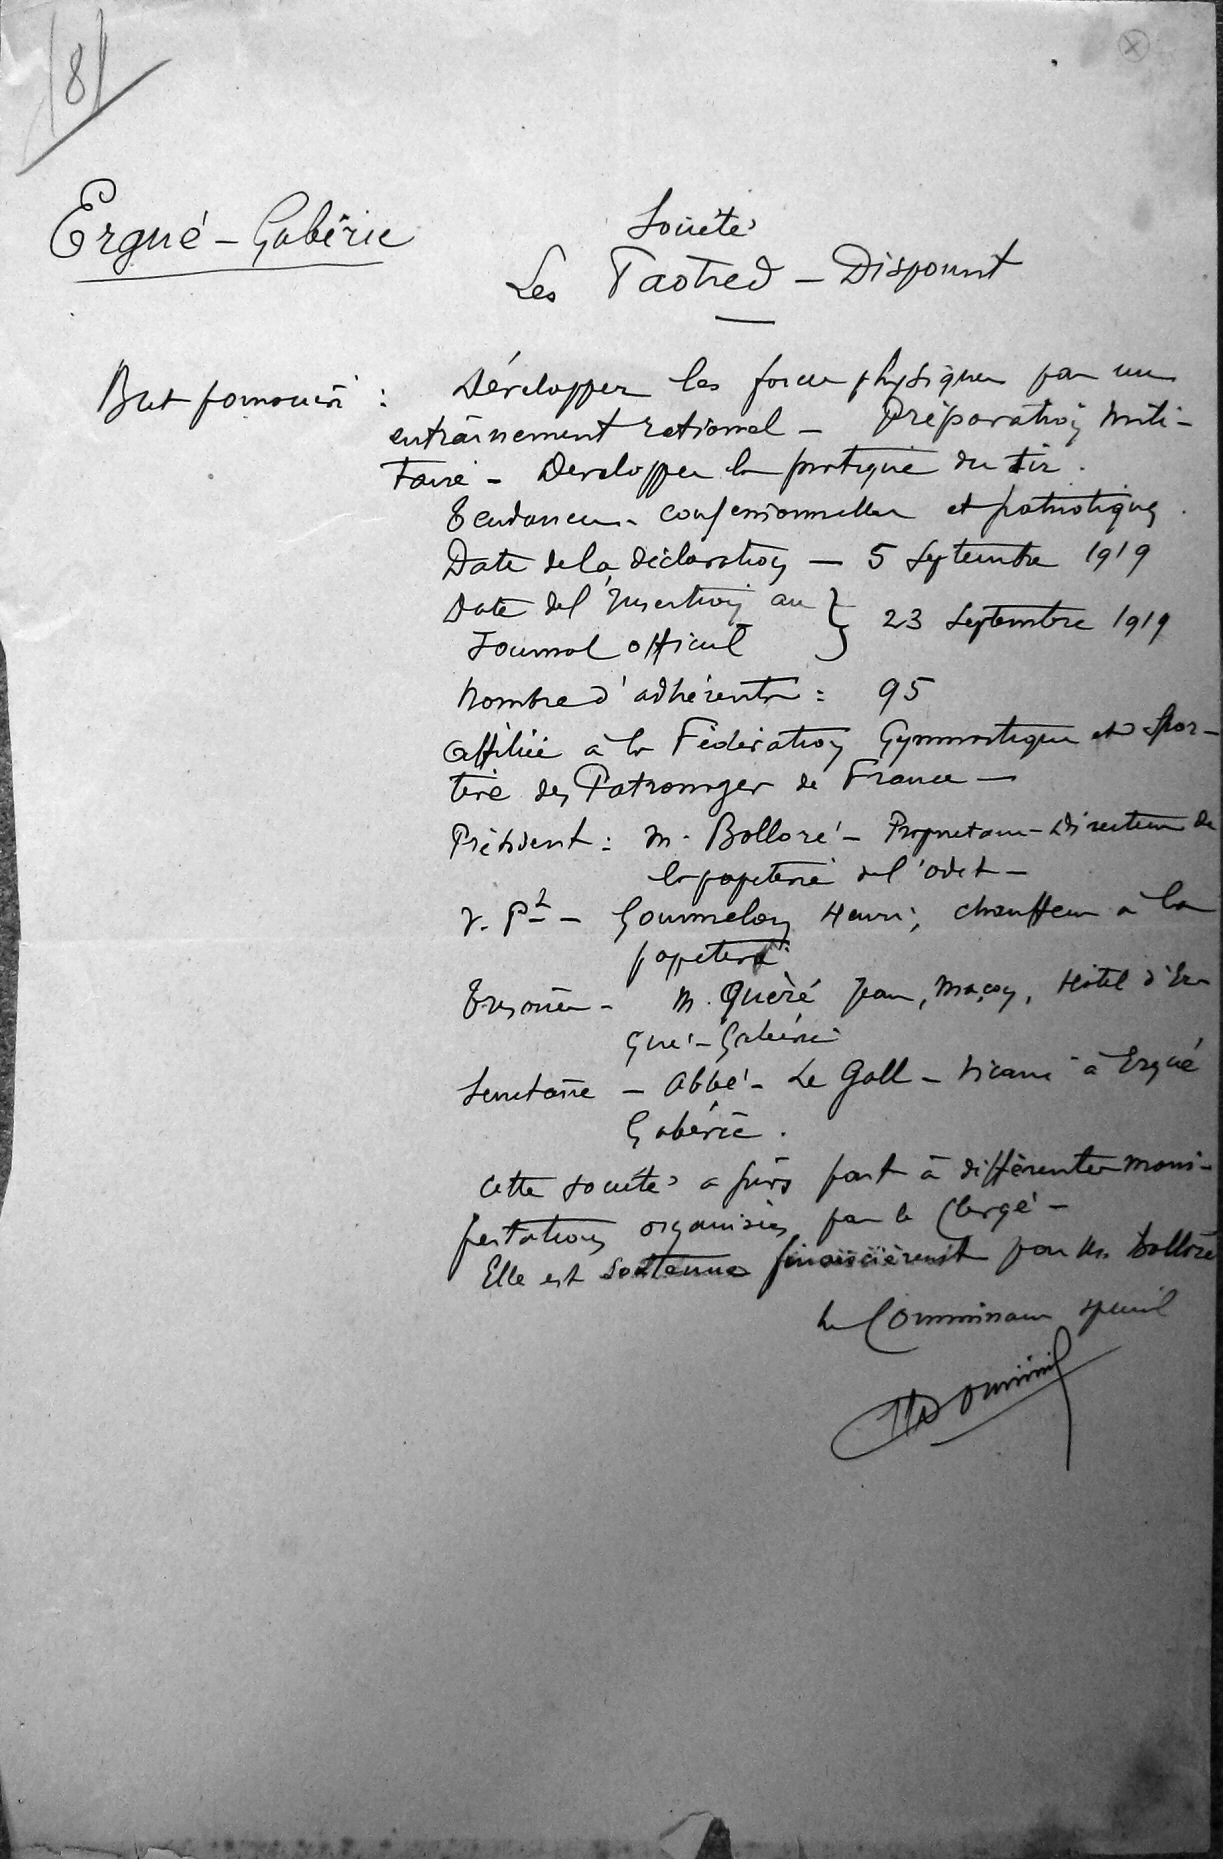 8
Ergué-Gabéric
Société
Les Paotred-Dispount
But poursuivi : Développer les forces physiques par un
entraînement rationnel - Préparation mili-
taire - Développer la pratique du tir.
Tendances - confessionnelles et patriotiques.
Date de la déclaration - 5 Septembre 1919
Date de l'Insertion au
Journal officiel } 23 Septembre 1919
Nombre d'adhérents : 95
Affiliée à la Fédération Gymnastique et Spor-
tive des Patronages de France -
Président : M. Bolloré - Propriétaire-Directeur de
la papeterie de l'Odet -
V. Pt - Gourmelon Henri, chauffeur à la
papeterie
Trésorier - M. Quéré Jean, Maçon, Hôtel d'Er-
gué-Gabéric
Secrétaire - Abbé - Le Gall - Vicaire à Ergué
Gabéric.
Cette société a pris part à différentes mani-
festations organisées par le Clergé -
Elle est soutenue financièrement par M. Bolloré
Le Commissaire spécial